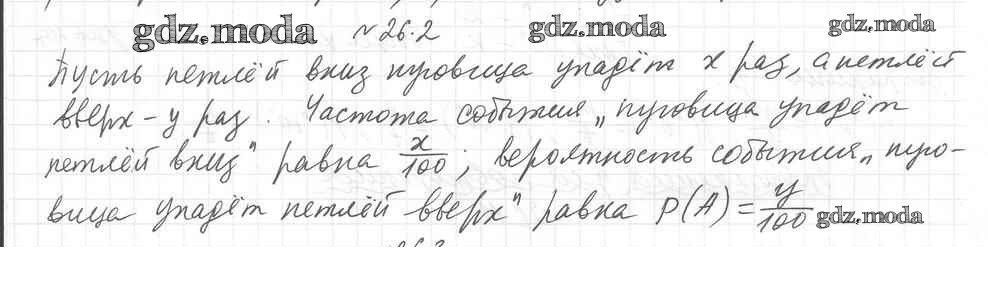 gdz.moda №26.2 gdz.moda gdz.moda
Пусть петлёй вниз пуговица упадёт x раз, а петлёй
вверх – y раз. Частота события „пуговица упадёт
петлёй вниз" равна x/100; вероятность события „пуго-
вица упадёт петлёй вверх" равна P(A) = y/100 gdz.moda